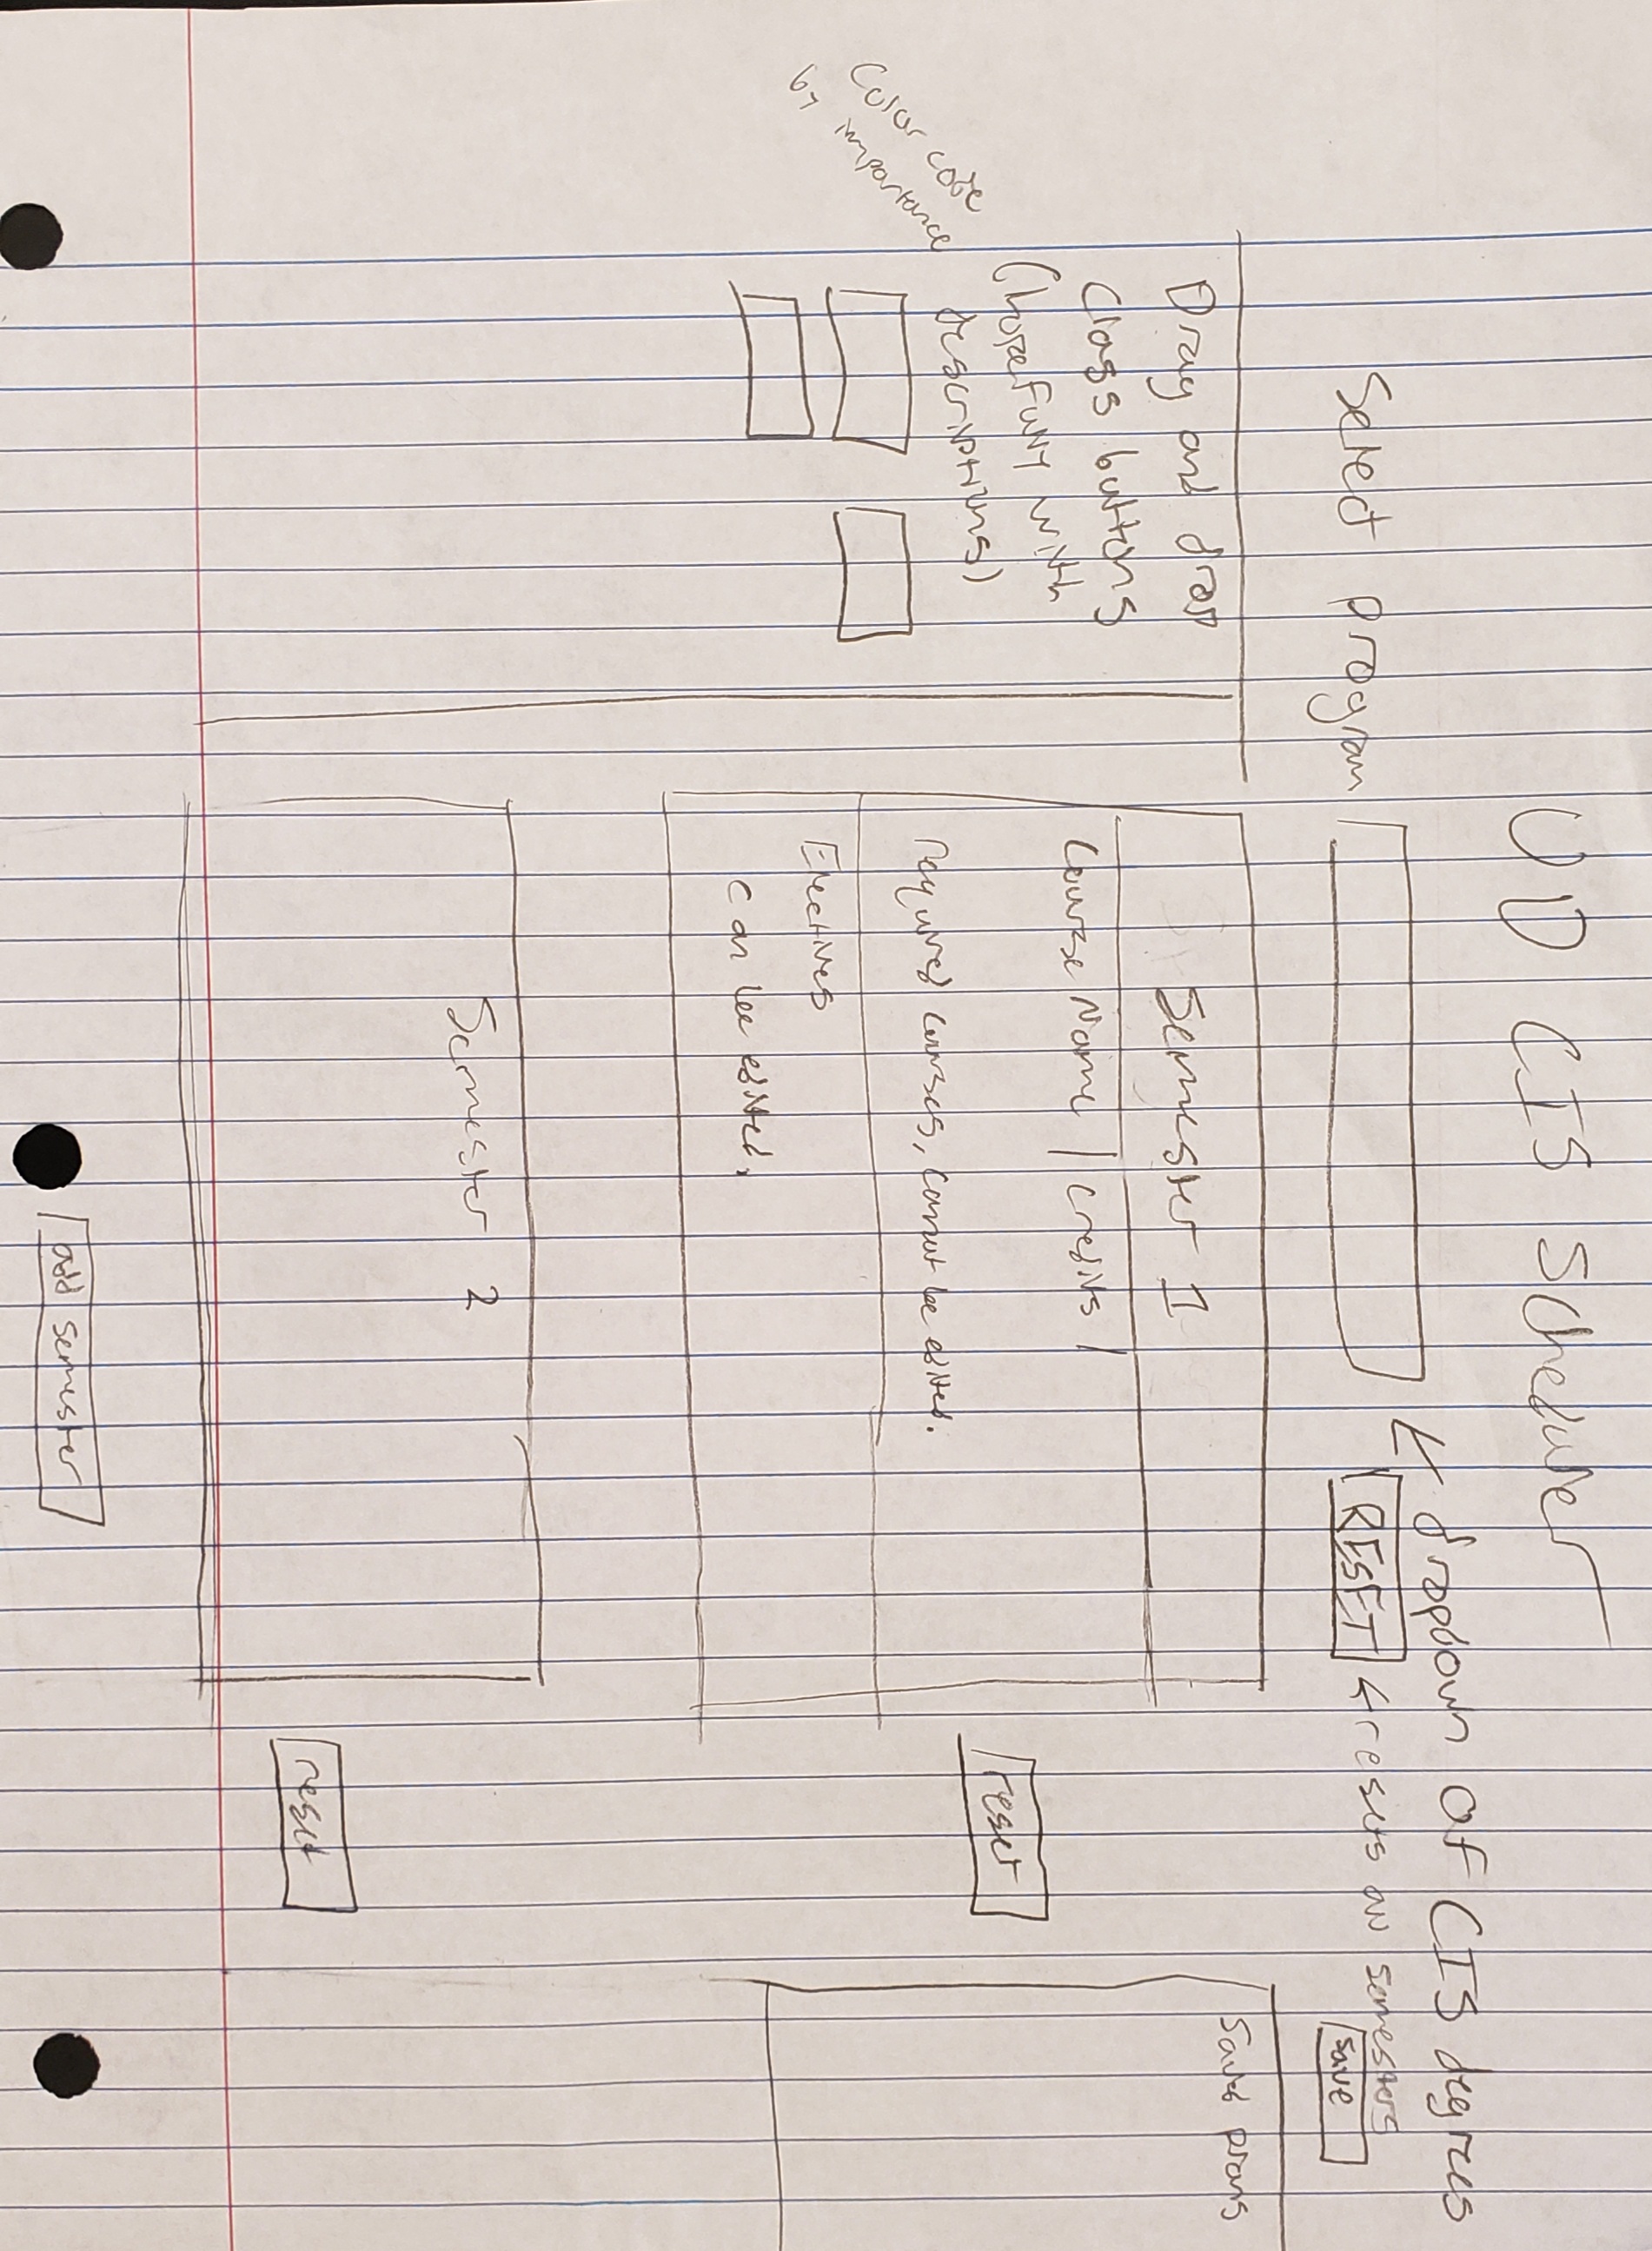 UD CIS Scheduler
Select program
← dropdown of CIS degrees
RESET
← resets all semesters
save
Drag and drop
Class buttons
(hopefully with
descriptions)
Color code
by importance
Semester 1
Course Name | Credits |
required courses, cannot be edited.
Electives
can be edited.
reset
Saved plans
Semester 2
reset
add semester